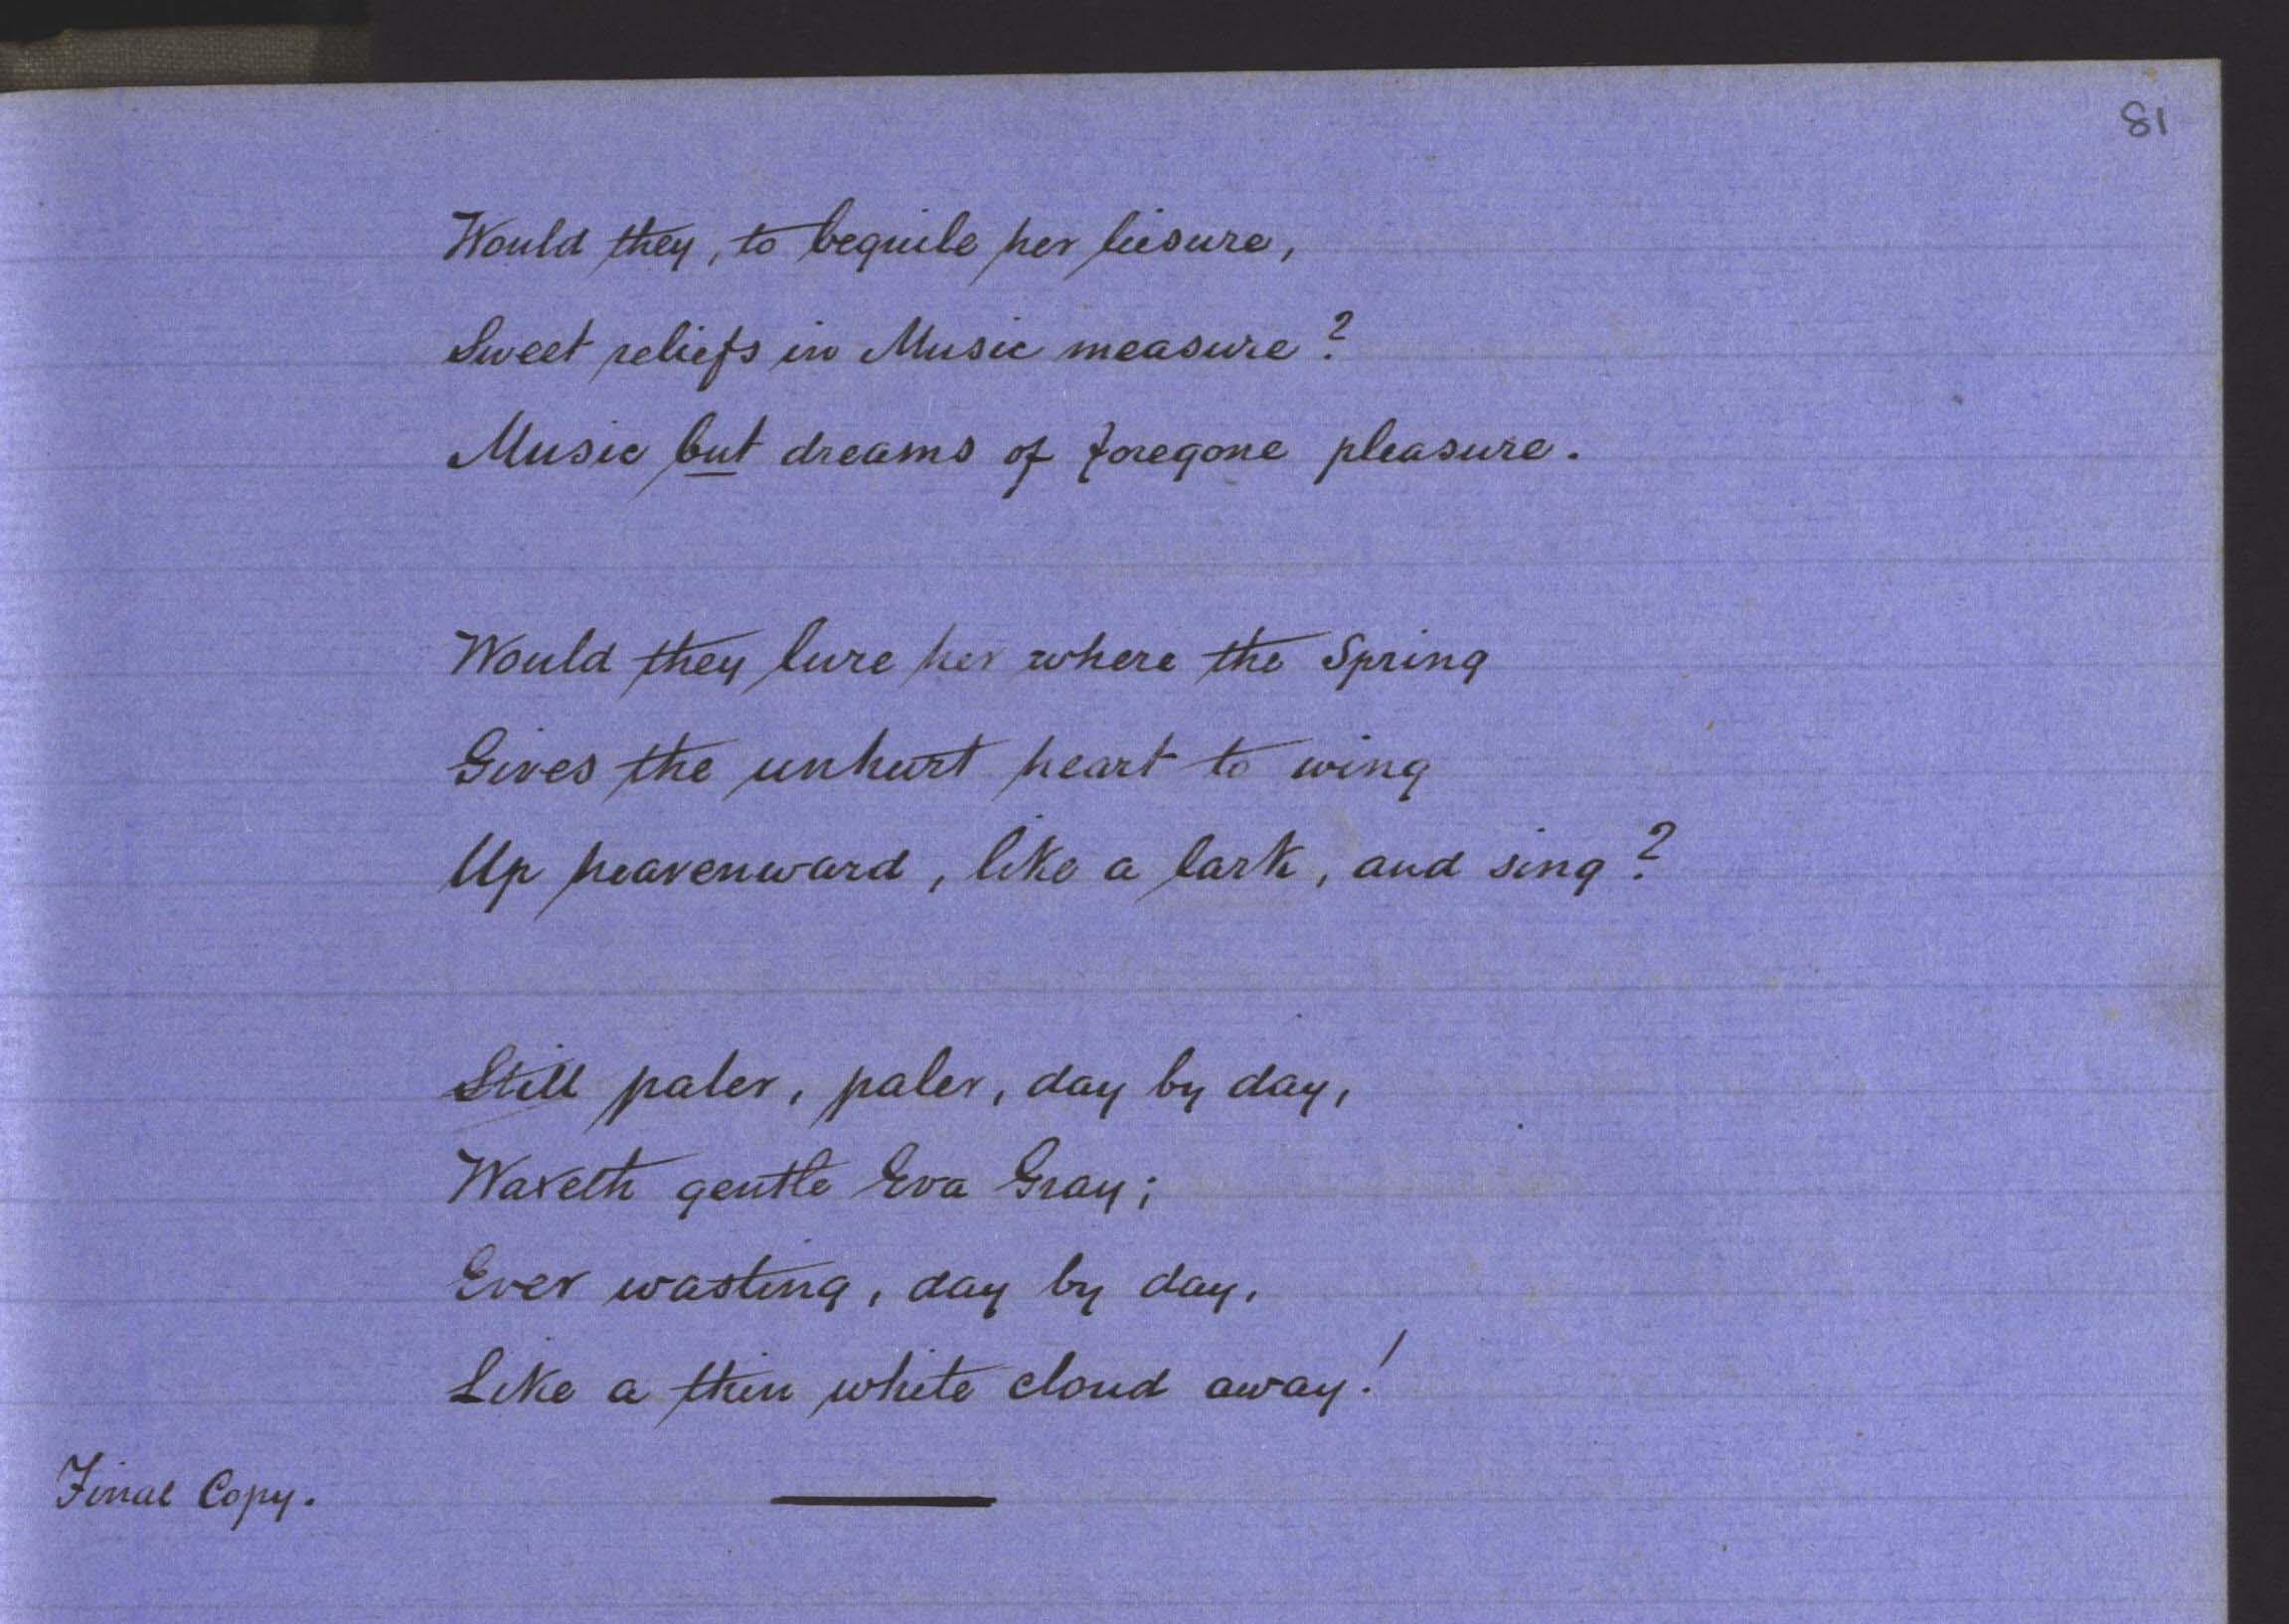 81
Would they, to beguile her liesure,
Sweet reliefs in Music measure?
Music but dreams of foregone pleasure.
Would they lure her where the Spring
Gives the unhurt heart to wing
Up heavenward, like a lark, and sing?
Still paler, paler, day by day,
Waxeth gentle Eva Gray;
Ever wasting, day by day,
Like a thin white cloud away!
Final Copy.